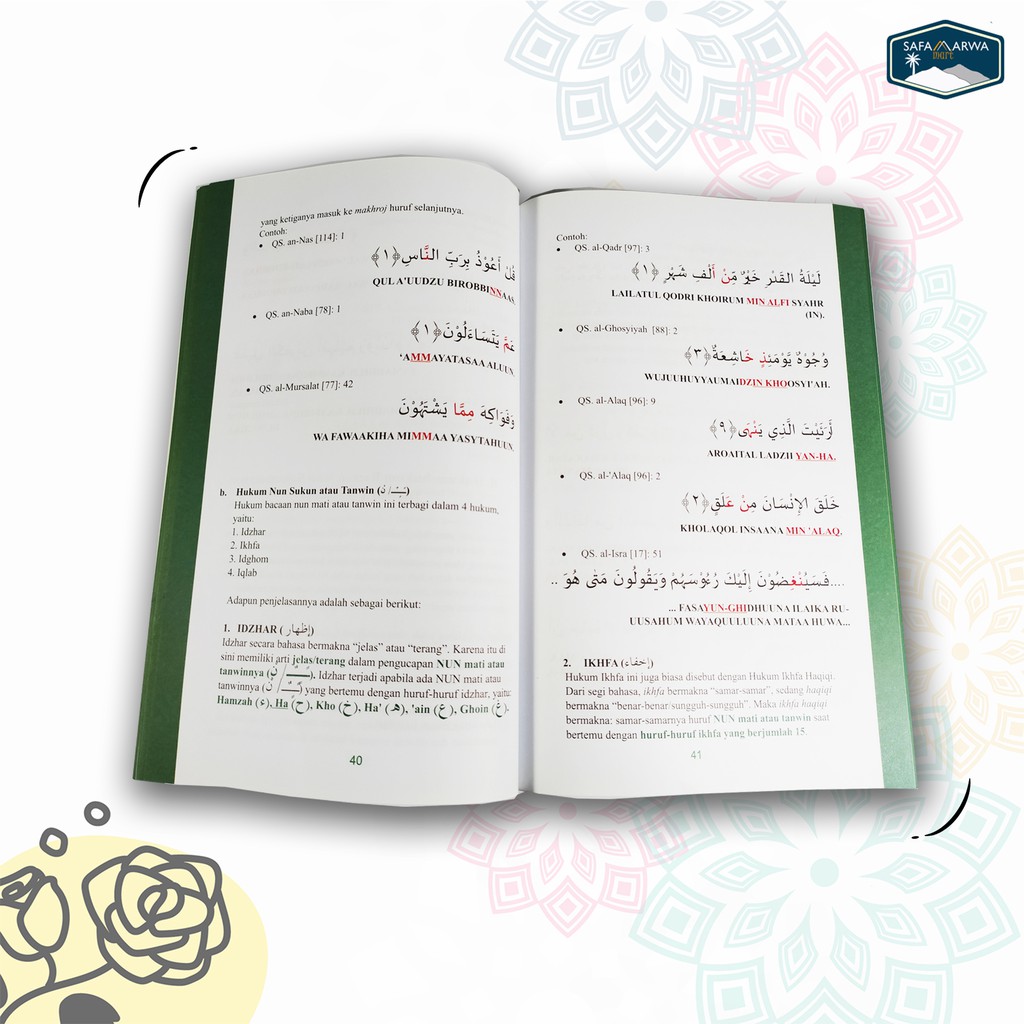 SAFA MARWA
mart
yang ketiganya masuk ke makhroj huruf selanjutnya.
Contoh:
• QS. an-Nas [114]: 1
قُلْ أَعُوْذُ بِرَبِّ النَّاسِ ﴿١﴾
QUL A'UUDZU BIROBBINNAAS.
• QS. an-Naba [78]: 1
عَمَّ يَتَسَاءَلُوْنَ ﴿١﴾
‘AMMAYATASAA ALUUN.
• QS. al-Mursalat [77]: 42
وَفَوَاكِهَ مِمَّا يَشْتَهُوْنَ
WA FAWAAKIHA MIMMAA YASYTAHUUN.
b. Hukum Nun Sukun atau Tanwin
Hukum bacaan nun mati atau tanwin ini terbagi dalam 4 hukum,
yaitu:
1. Idzhar
2. Ikhfa
3. Idghom
4. Iqlab
Adapun penjelasannya adalah sebagai berikut:
1. IDZHAR (إظهار)
Idzhar secara bahasa bermakna “jelas” atau “terang”. Karena itu di
sini memiliki arti jelas/terang dalam pengucapan NUN mati atau
tanwinnya. Idzhar terjadi apabila ada NUN mati atau
tanwinnya yang bertemu dengan huruf-huruf idzhar, yaitu:
Hamzah (ء), Ha (ح), Kho (خ), Ha' (هـ), 'ain (ع), Ghoin (غ).
40
Contoh:
• QS. al-Qadr [97]: 3
لَيْلَةُ الْقَدْرِ خَيْرٌ مِّنْ أَلْفِ شَهْرٍ ﴿١﴾
LAILATUL QODRI KHOIRUM MIN ALFI SYAHR
(IN).
• QS. al-Ghosyiyah [88]: 2
وُجُوْهٌ يَّوْمَئِذٍ خَاشِعَةٌ ﴿٣﴾
WUJUUHUYYAUMAIDZIN KHOOSYI'AH.
• QS. al-Alaq [96]: 9
أَرَئَيْتَ الَّذِي يَنْهَى ﴿٩﴾
AROAITAL LADZII YAN-HA.
• QS. al-'Alaq [96]: 2
خَلَقَ الإِنْسَانَ مِنْ عَلَقٍ ﴿٢﴾
KHOLAQOL INSAANA MIN 'ALAQ.
• QS. al-Isra [17]: 51
....فَسَيُنْغِضُوْنَ إِلَيْكَ رُءُوْسَهُمْ وَيَقُولُونَ مَتَى هُوَ ..
... FASAYUN-GHIDHUUNA ILAIKA RU-
UUSAHUM WAYAQUULUUNA MATAA HUWA...
2. IKHFA (إخفاء)
Hukum Ikhfa ini juga biasa disebut dengan Hukum Ikhfa Haqiqi.
Dari segi bahasa, ikhfa bermakna “samar-samar”, sedang haqiqi
bermakna “benar-benar/sungguh-sungguh”. Maka ikhfa haqiqi
bermakna: samar-samarnya huruf NUN mati atau tanwin saat
bertemu dengan huruf-huruf ikhfa yang berjumlah 15.
41